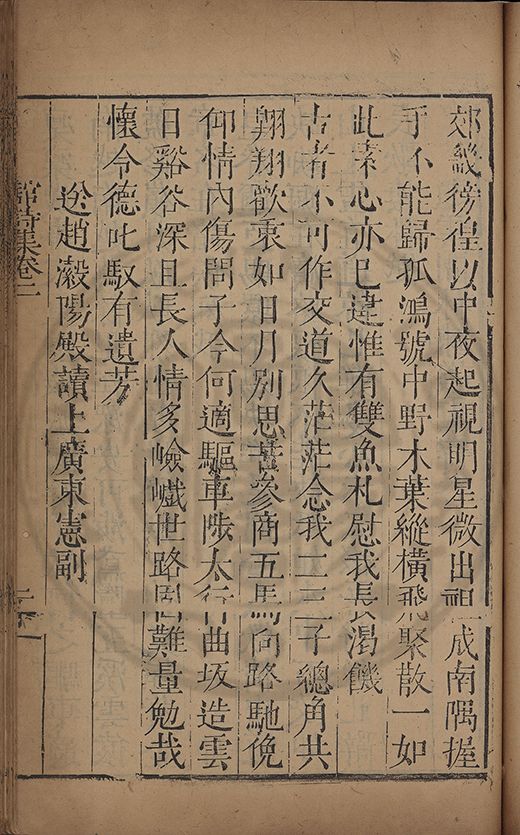 郊畿徬徨以中夜起視明星微出祖城南隅握
手不能歸孤鴻號中野木葉縱橫飛聚散一如
此素心亦已違惟有雙魚札慰我長渴饑
古者不可作交道久茫茫念我二三子總角共
翱翔歡東如日月別思菩參商五馬向路馳俛
仰情內傷問子今何適驅車陟太行曲坂造雲
日谿谷深且長人情多嶮巇世路難量勉哉
懷令德叱馭有遺芳
送趙瀔陽殿讀上廣東憲副
集卷二